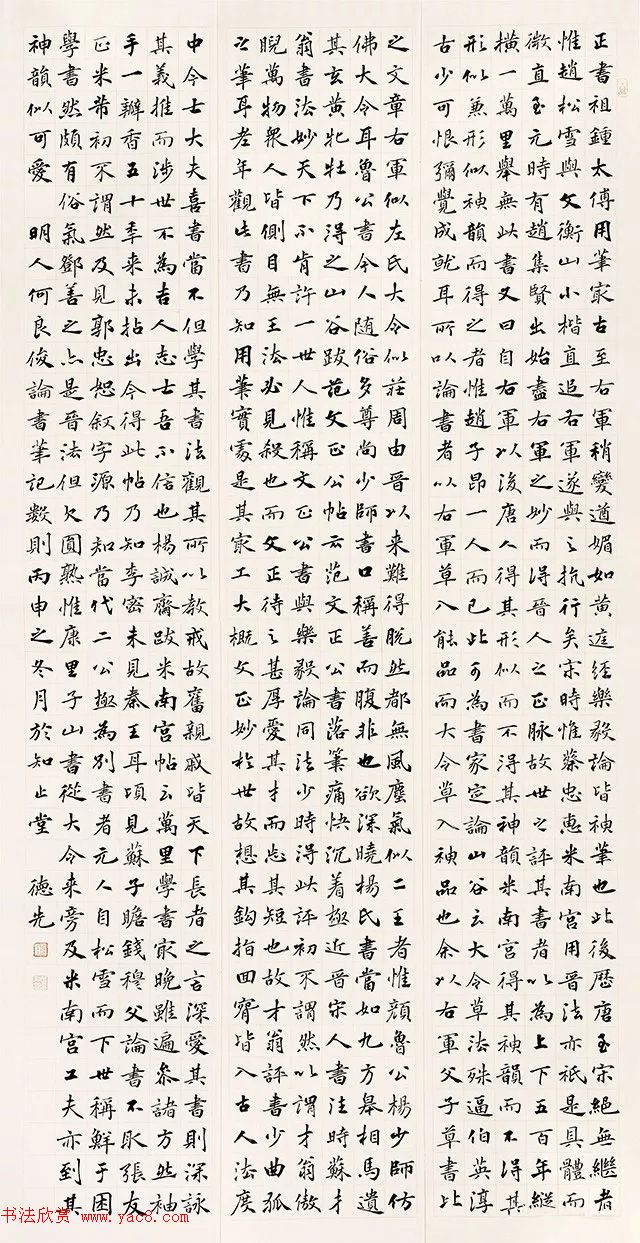 正書祖鍾太傅用筆冣古至右軍稍變遒媚如黃庭經樂毅論皆神筆也此後歷唐至宋絕無繼者
惟趙松雪與文衡山小楷直追右軍遂與之抗行矣宋時惟蔡忠惠米南宮用晉法亦祇是具體而
微直至元時有趙集賢出始盡右軍之妙而得晉人之正脉故世之評其書者以為上下五百年縱
橫一萬里舉無此書又曰自右軍以後唐人得其形似而不得其神韻米南宮得其神韻而不得其
形似兼形似神韻而得之者惟趙子昂一人而已此可為書家定論山谷云大令草法殊逼伯英淳
古少可恨彌覺成就耳所以論書者以右軍草入能品而大令草入神品也余以右軍父子草書比
之文章右軍似左氏大令似莊周由晉以來難得脫然都無風塵氣似二王者惟顏魯公楊少師仿
佛大令耳魯公書今人随俗多尊尚少師書口稱善而腹非也欲深曉楊氏書當如九方皋相馬遺
其玄黃牝牡乃得之山谷跋范文正公帖云范文正公書落筆痛快沉着極近晉宋人書法時蘇才
翁書法妙天下不肯許一世人惟稱文正公書與樂毅論同法少時得此評初不謂然以謂才翁傲
睨萬物眾人皆側目無王法必見殺也而文正待之甚厚愛其才而忘其短也故才翁評書少曲狐
公筆耳老年觀此書乃知用筆實處是其冣工大概文正妙於世故想其鈎指回腕皆入古人法度
中今士大夫喜書當不但學其書法觀其所以教戒故舊親戚皆天下長者之言深愛其書則深詠
其義推而涉世不為吉人志士吾不信也楊誠齋跋米南宮帖云萬里學書冣晚雖遍參諸方然袖
手一瓣香五十季來未拈出今得此帖乃知李密未見秦王耳頃見蘇子瞻錢穆父論書不取張友
正米芾初不謂然及見郭忠恕敘字源乃知當代二公極為別書者元人自松雪而下世稱鮮于困
學書然頗有俗氣鄧善之亦是晉法但欠圓熟惟康里子山書從大令來旁及米南宮工夫亦到其
神韻似可愛 明人何良俊論書筆記數則丙申之冬月於知止堂 德先
书法欣赏 www.yac8.com